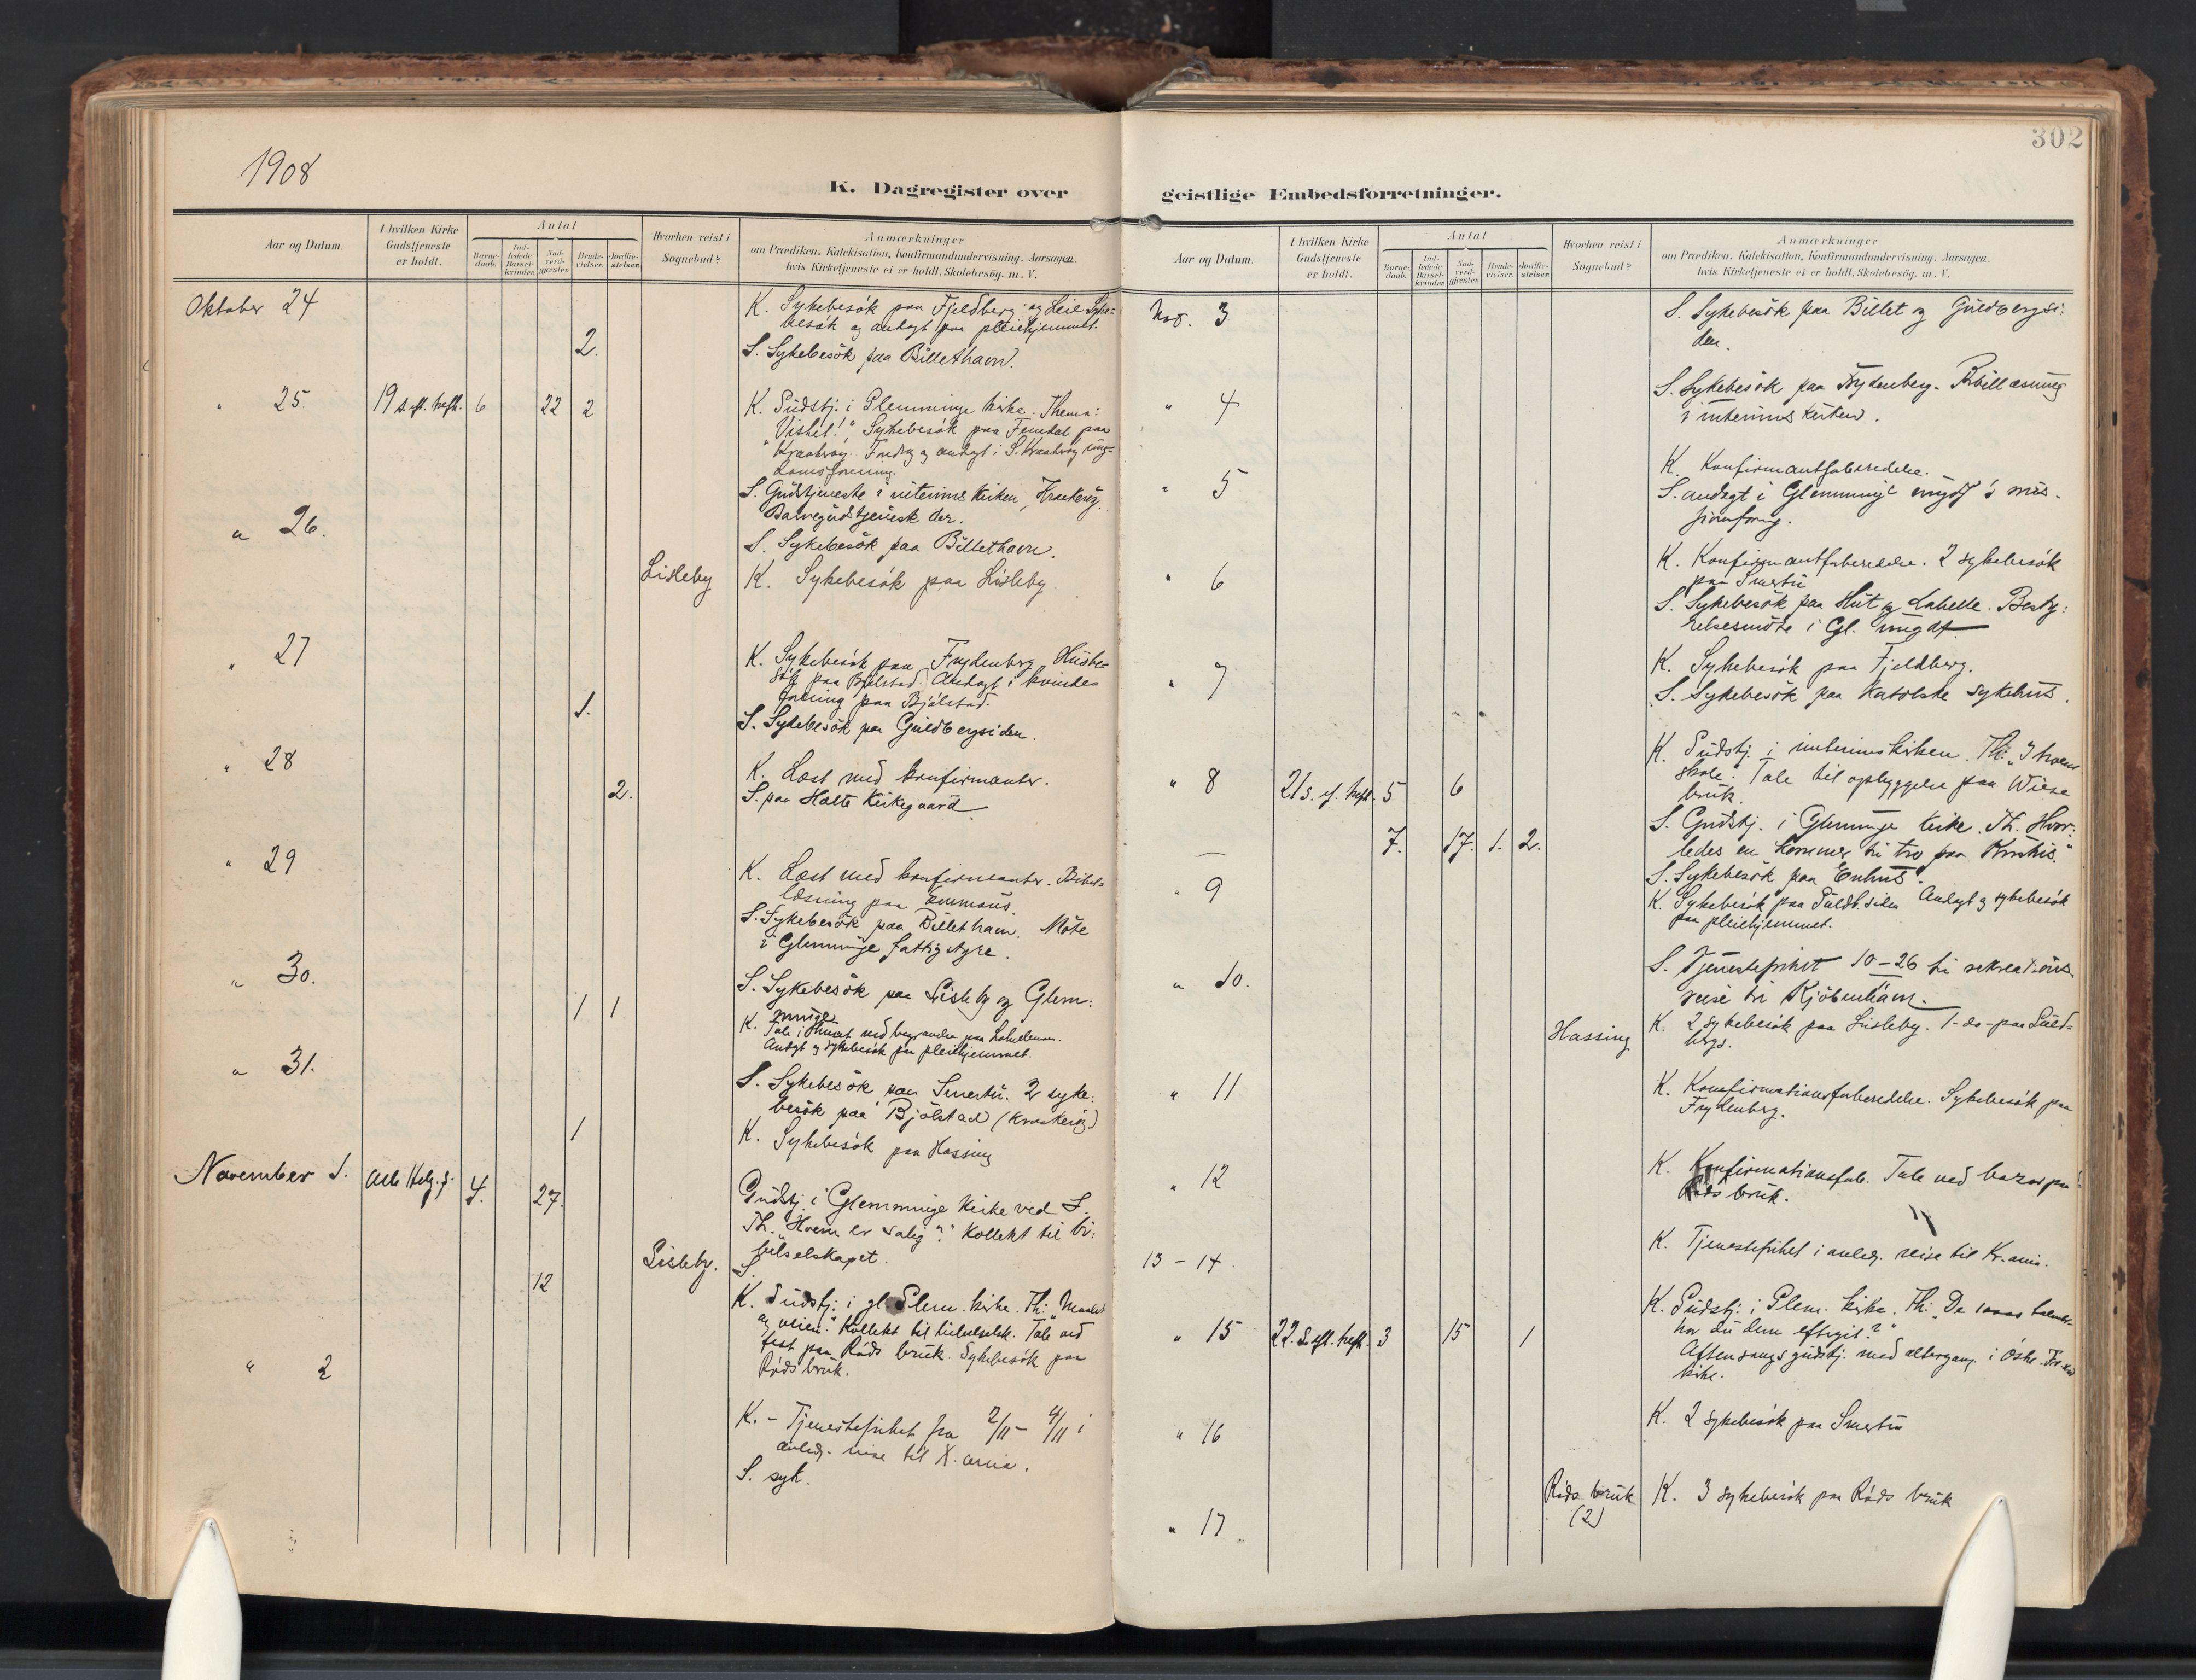 302
1908
K. Dagregister over geistlige Embedsforretninger.
Aar og Datum.
I hvilken Kirke Gudstjeneste er holdt.
Antal
Barne-daab.
Ind-ledede Barsel-kvinder.
Nad-verd-gjester.
Brude-vielser.
Jordfæ-stelser.
Hvorhen reist i Sognebud?
Anmærkninger
om Prædiken, Katekisation, Konfirmandundervisning. Aarsagen,
hvis Kirketjeneste ei er holdt. Skolebesög. m. V.
Oktober 24
K. Sykebesök paa Fjeldberg og Leie Syke=
besök og andagt paa pleiehjemmet.
2.
S. Sykebesök paa Billethavn.
" 25. 19 s. eft. trefh. 6 22 2
K. Gudstj. i Glemminge kirke. Thema:
"Vishet!" Sykebesök paa paa
Kraakeröy. og andagt i S. Kraakeröy ung=
domsforening.
S. Gudstjeneste i interims kirken, Kraakeröy.
Barnegudstjeneste der.
" 26.
S. Sykebesök paa Billethavn.
Lisleby K. Sykebesök paa Lisleby.
" 27
K. Sykebesök paa Frydenberg Husbe=
sök paa Bjölstad. Andagt i kvinde=
forening paa Bjölstad.
1.
S. Sykebesök paa Guldbergsiden.
" 28
K. Læst med konfirmanter.
2.
S. paa Holte Kirkegaard
" 29
K. Læst med konfirmanter. Bibel=
læsning paa Emmaus.
S. Sykebesök paa Billethavn. Möte
i Glemminge fattigstyre.
" 30.
S. Sykebesök paa Lisleby og Glem:
minge
1 1
K. Tale i ved begravelse paa
Andagt og sykebesök paa pleiehjemmet.
" 31.
S. Sykebesök paa Smertu. 2 syke:
besök paa Bjölstad (Kraakeröy)
1
K. Sykebesök paa Hassing
November 1. Alle Helg. f. 4. 27.
Gudstj. i Glemminge Kirke ved S.
Th. "Hvem er salig"? Kollekt til bi:
belselskapet.
Lisleby. S.
12
K. Gudstj. i gl. Glem. kirke. Th: "Maalet
og veien." Kollekt til bibelselsk. Tale ved
fest paa Röds bruk. Sykebesök paa
Röds bruk.
" 2
K. - Tjenestefrihet fra 2/11 - 4/11 i
anledn. reise til X.ania.
S. syk.
Aar og Datum.
I hvilken Kirke Gudstjeneste er holdt.
Antal
Barne-daab.
Ind-ledede Barsel-kvinder.
Nad-verd-gjester.
Brude-vielser.
Jordfæ-stelser.
Hvorhen reist i Sognebud?
Anmærkninger
om Prædiken, Katekisation, Konfirmandundervisning. Aarsagen,
hvis Kirketjeneste ei er holdt. Skolebesög. m. V.
Nov. 3
S. Sykebesök paa Billet og Guldbergsi:
den.
" 4
S. Sykebesök paa Frydenberg. Bibellæsning
i interims kirken.
" 5
K. Konfirmantforberedelse.
S. andagt i Glemminge ungdf's mis-
jonsforng.
" 6
K. Konfirmantforberedelse. 2 sykebesök
paa Smertu
S. Sykebesök paa Hut og Labelle. Besty:
relsesmöte i Gl. ungdf.
" 7
K. Sykebesök paa Fjeldberg.
S. Sykebesök paa katolske sykehus.
" 8 21 s. ef. trefh. 5 6
K. Gudstj. i interimskirken. Th: "I troens
skole". Tale til opbyggelse paa Wiese
bruk.
— 7. 17. 1. 2.
S. Gudstj. i Glemminge kirke. Th. Hvor:
ledes en kommer til tro paa Kristus."
" 9
S. Sykebesök paa Enhus.
K. Sykebesök paa Guldb.siden Andagt og sykebesök
paa pleiehjemmet.
" 10.
S. Tjenestefrihet 10-26 til rekreations
reise til Kjöbenhavn.
Hassing K. 2 sykebesök paa Lisleby. 1 - do - paa Guld=
bergs.
" 11
K. Konfirmationsforberedelse. Sykebesök paa
Frydenberg.
" 12
K. Konfirmationsforb. Tale ved basar paa
Röds bruk.
13 - 14.
K. Tjenestefrihet i anledn. reise til Kr.ania.
" 15 22. s. eft. trefh. 3 15 1
K. Gudstj. i Glem. kirke. Th: "De
har du dem eftergit?"
Aftensangsgudstj. med altergang i östre Fr.stad
kirke.
" 16
K. 2 sykebesök paa Smertu
" 17
Röds bruk
(2)
K. 3 sykebesök paa Röds bruk